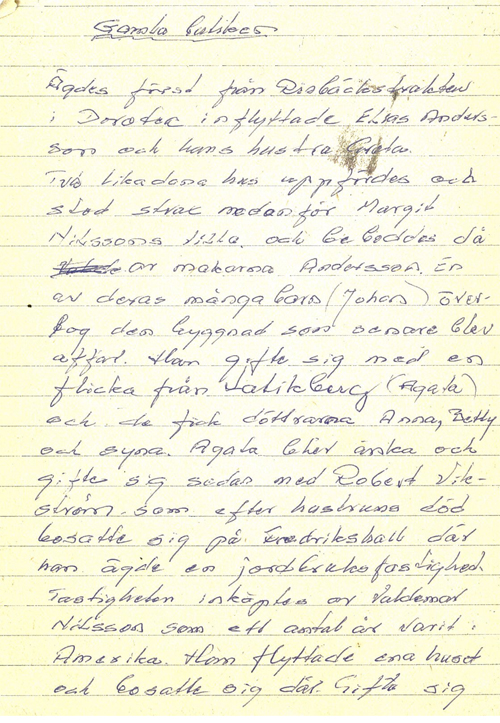 Gamla butiken
Ägdes först från Risbäckstrakten
i Dorotea inflyttade Elias Anders-
son och hans hustru Greta.
Två likadana hus uppfördes och
stod strax nedanför Margit
Nilssons villa, och beboddes då
av makarna Andersson. En
av deras många barn (Johan) över-
tog den byggnad som senare blev
affär. Han gifte sig med en
flicka från Latikberg (Agata)
och de fick döttrarna Anna, Betty
och Syna. Agata blev änka och
gifte sig sedan med Robert Vik-
ström som efter hustruns död
bosatte sig på Fredrikshall där
han ägde en jordbruksfastighet.
Fastigheten inköptes av Valdemar
Nilsson som ett antal år varit i
Amerika. Han flyttade ena huset
och bosatte sig där. Gifte sig